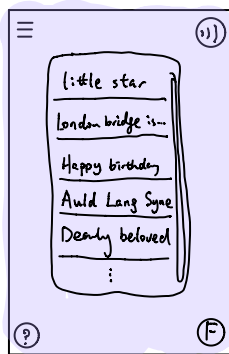 little star
London bridge is...
Happy birthday
Auld Lang Syne
Dearly beloved
⋮
?
F